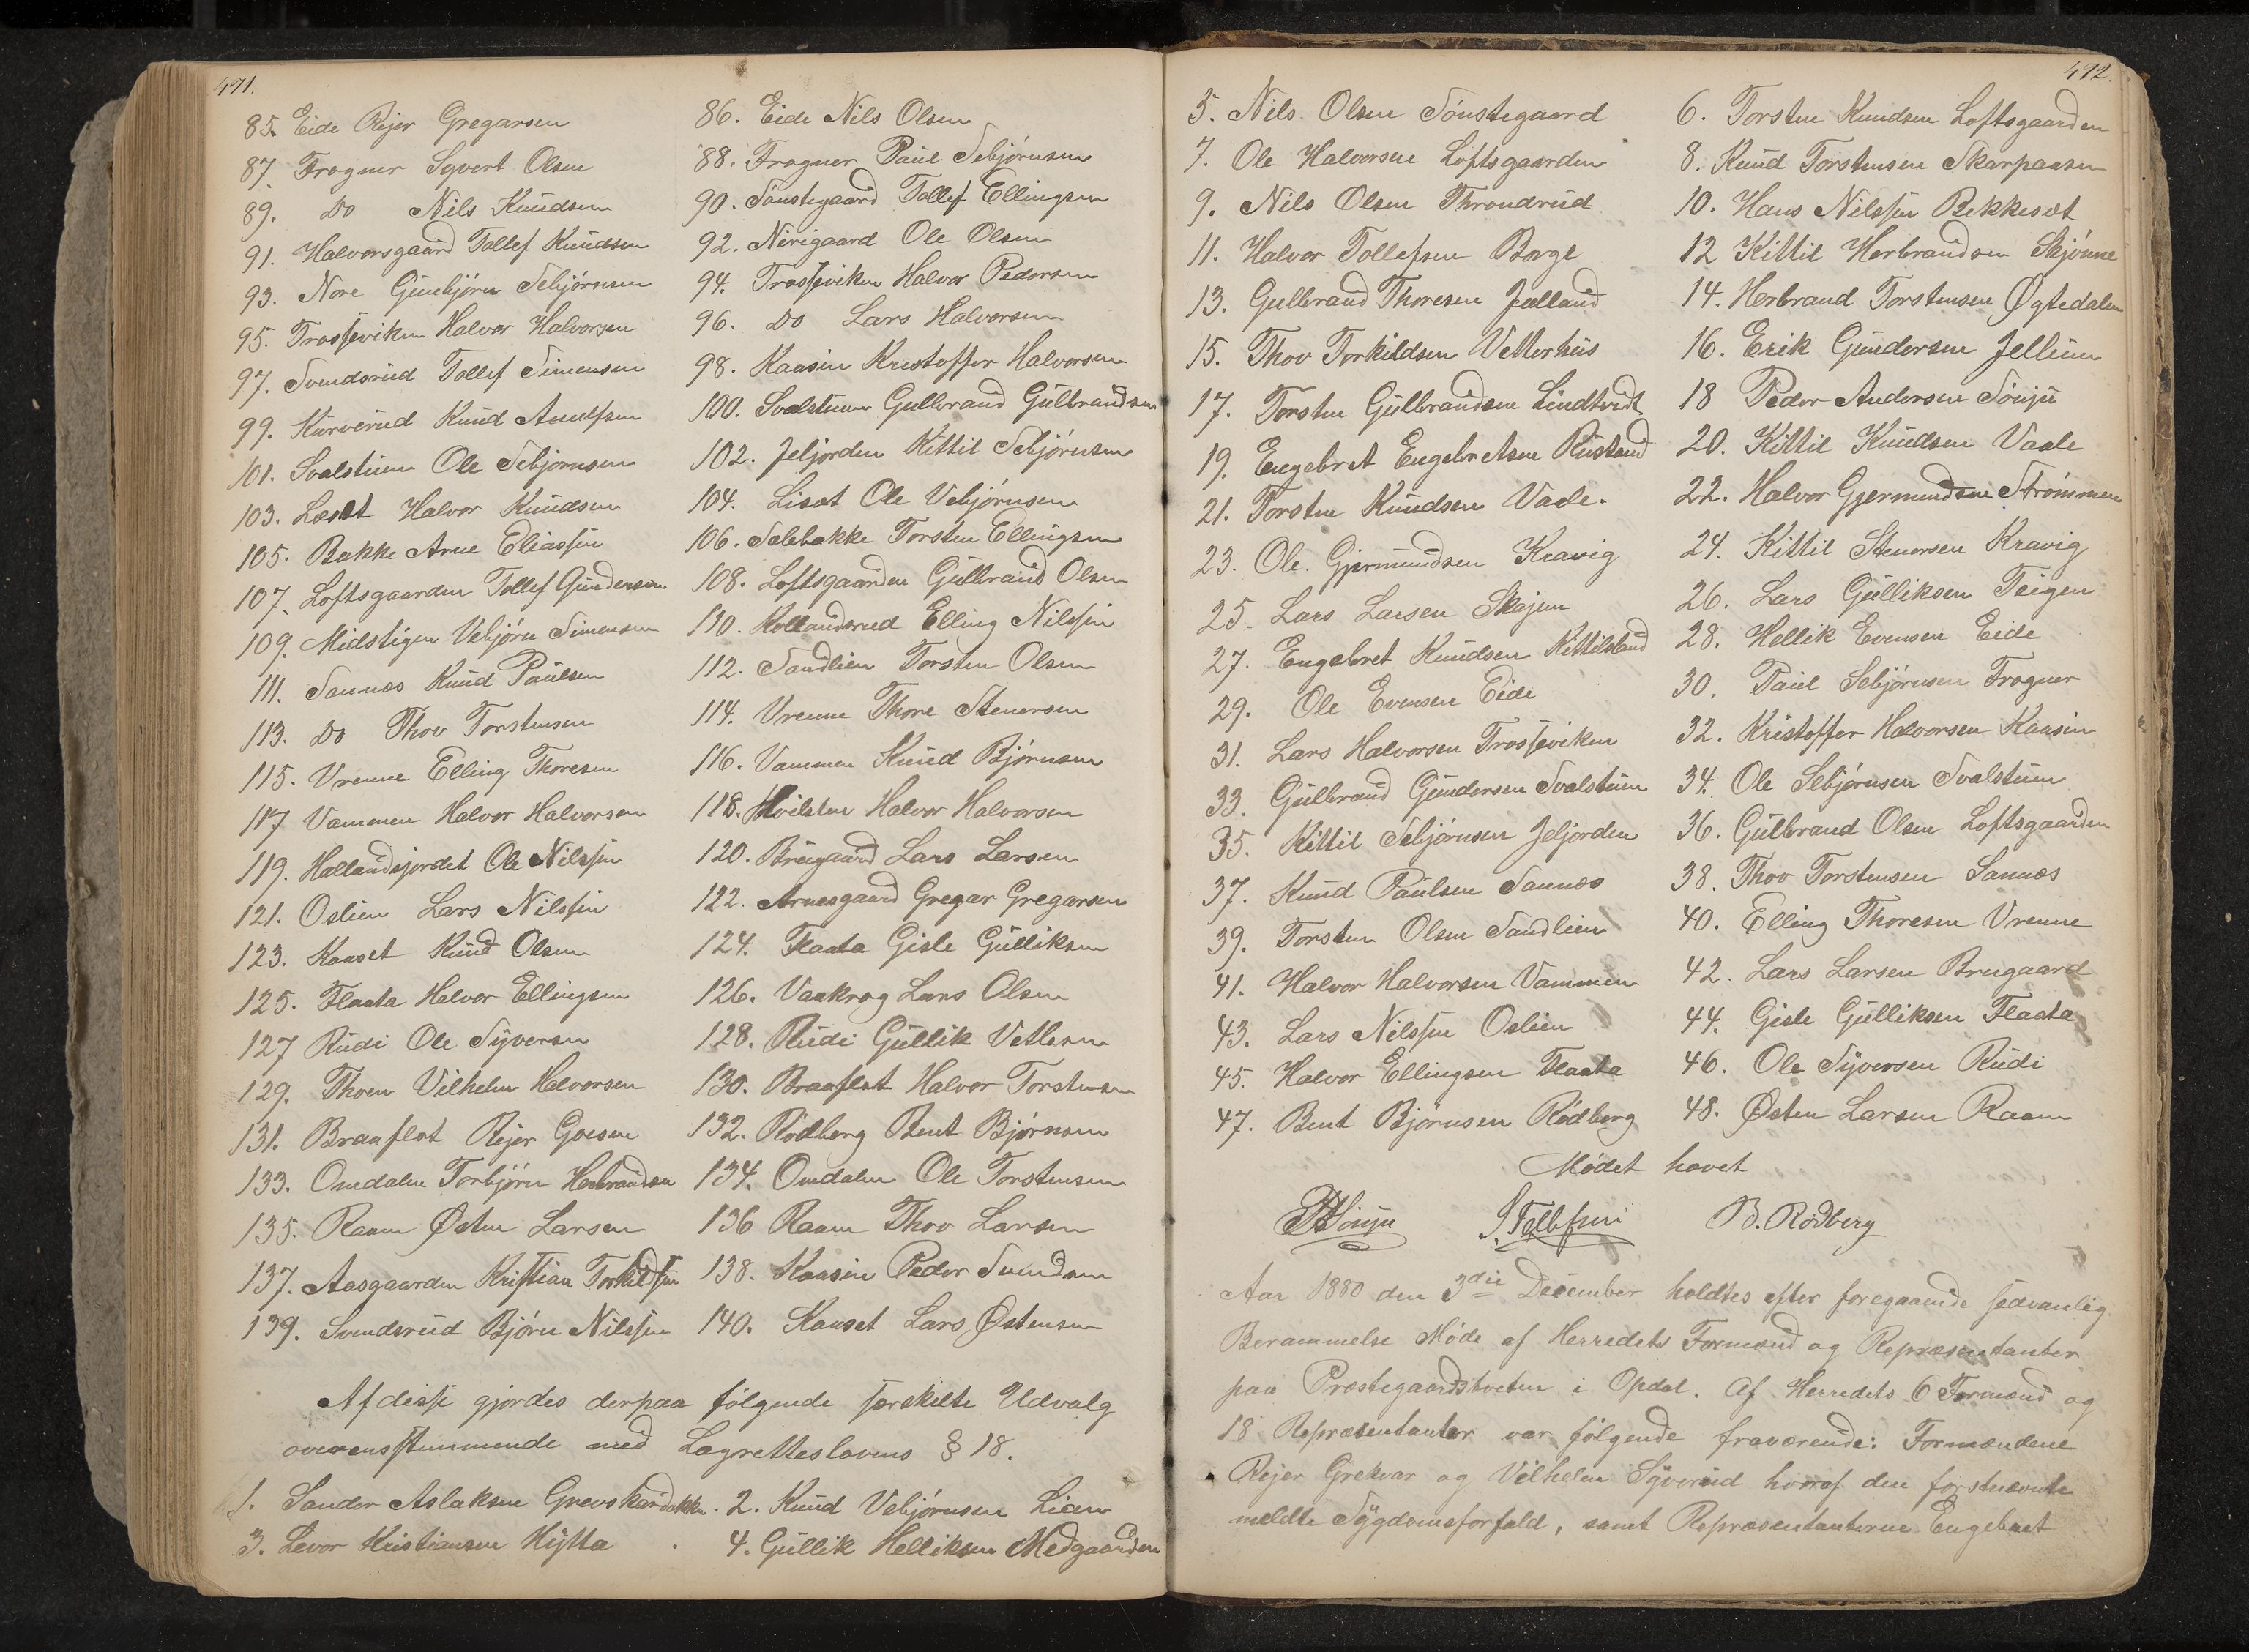 491.
85. Eide Rejer Gregarsen 86. Eide Nils Olsen
87. Frogner Syvert Olsen 88. Frogner Paul Sebjörnsen
89. Do Nils Knudsen 90. Sönstegaard Tollef Ellingsen
91. Halvorsgaard Tollef Knudsen 92. Nerigaard Ole Olsen
93. Nore Gunbjörn Sebjörnsen 94. Trosseviken Halvor Pedersen
95. Trosseviken Halvor Halvorsen 96. Do Lars Halvorsen
97. Svendsrud Tollef Simensen 98. Kaasin Kristoffer Halvorsen
99. Kurverud Knud Anulfsen 100. Svalstuen Gulbrand Gulbrandsen
101. Svalstuen Ole Sebjörnsen 102. Jeljorden Kittil Sebjörnsen
103. Læset Halvor Knudsen 104. Liset Ole Vebjörnsen
105. Bakke Arne Eliassen 106. Solebakke Torsten Ellingsen
107. Loftsgaarden Tollef Gundersen 108. Loftsgaarden Gulbrand Olsen
109. Midstigen Vebjörn Simensen 110. Hollandsrud Elling Nilssen
111. Sannes Knud Paulsen 112. Sandlien Torsten Olsen
113. Do Thov Torstensen 114. Vrenne Thore Stenersen
115. Vrenne Elling Thoresen 116. Vammen Knud Björnsen
117 Vammen Halvor Halvorsen 118. Hvilsten Halvor Halvorsen
119. Hallandsjordet Ole Nilssen 120. Brugaard Lars Larsen
121. Oslien Lars Nilssen 122. Arnesgaard Gregar Gregarsen
123. Kaaset Knud Olsen 124. Flaata Gisle Gulliksen
125. Flaata Halvor Ellingsen 126. Vaakrag Lars Olsen
127 Rudi Ole Syversen 128. Rudi Gullik Vetlesen
129. Thoen Vilhelm Halvorsen 130. Braaflat Halvor Torstensen
131. Braaflot Rejer Goesen 132. Rödberg Bent Björnsen
133. Omdalen Torbjörn Herbrandsen 134. Omdalen Ole Torstensen
135. Raaen Østen Larsen 136 Raaen Thov Larsen
137. Aasgaarden Kristian Torkildsen 138. Kaasin Peder Svendsen
139. Svendsrud Björn Nilssen 140. Kaaset Lars Østensen
Af disse gjordes derpaa fölgende særskilte Udvalg
overensstemmende med Lagretteslovens § 18.
1. Sander Aslaksen Grevskardbakke. 2. Knud Vebjörnsen Lien
3. Levor Kristiansen Hytta . 4. Gullik Helliksen Medgaarden
492.
5. Nils Olsen Sönstegaard 6. Torsten Knudsen Loftsgaarden
7. Ole Halvorsen Loftsgaarden 8. Knud Torstensen Skarpaasen
9. Nils Olsen Throndrud 10. Hans Nilssen Bekkeset
11. Halvor Tollefsen Borge 12 Kittil Herbrandsen Skjönne
13. Gulbrand Thoresen Jælland 14. Herbrand Torstensen Øgtedalen
15. Thov Torkildsen Vetterhus 16. Erik Gundersen Jellum
17. Torsten Gulbrandsen Lindtvedt 18 Peder Andersen Sönju
19. Engebret Engebretsen Rustand 20. Kittil Knudsen Vaale
21. Torsten Knudsen Vaale. 22. Halvor Gjermundsen Strömmen
23. Ole Gjermundsen Kravig 24. Kittil Stenersen Kravig
25. Lars Larsen Skajem 26. Lars Gulliksen Teigen
27. Engebret Knudsen Kittilsland 28. Hellik Evensen Eide
29. Ole Evensen Eide 30. Paul Sebjörnsen Frogner
31. Lars Halvorsen Trosseviken 32. Kristoffer Halvorsen Kaasin
33. Gulbrand Gundersen Svalstuen 34. Ole Sebjörnsen Svalstuen
35. Kittil Sebjörnsen Jeljorden 36. Gulbrand Olsen Loftsgaarden
37. Knud Paulsen Sannes 38. Thov Torstensen Sannes
39. Torsten Olsen Sandlien 40. Elling Thoresen Vrenne
41. Halvor Halvorsen Vammen 42. Lars Larsen Brugaard
43. Lars Nilssen Oslien 44. Gisle Gulliksen Flaata
45. Halvor Ellingsen Flaata 46. Ole Syversen Rudi
47. Bent Björnsen Rödberg 48. Østen Larsen Raaen
Mödet hævet
Sönju S. Tollefsen B. Rödberg
Aar 1880 den 3die December holdtes efter foregaaende sedvanlig
Berammelse Möde af Herredets Formænd og Repræsentanter
paa Præstegaardstveten i Opdal. Af Herredets 6 Formænd og
18 Repræsentanter var fölgende fraværende: Formændene
Rejer Grekvar og Vilhelm Syverud hvoraf den förstnævnte
meldte Sygdomsforfald, samt Repræsentanterne Engebret